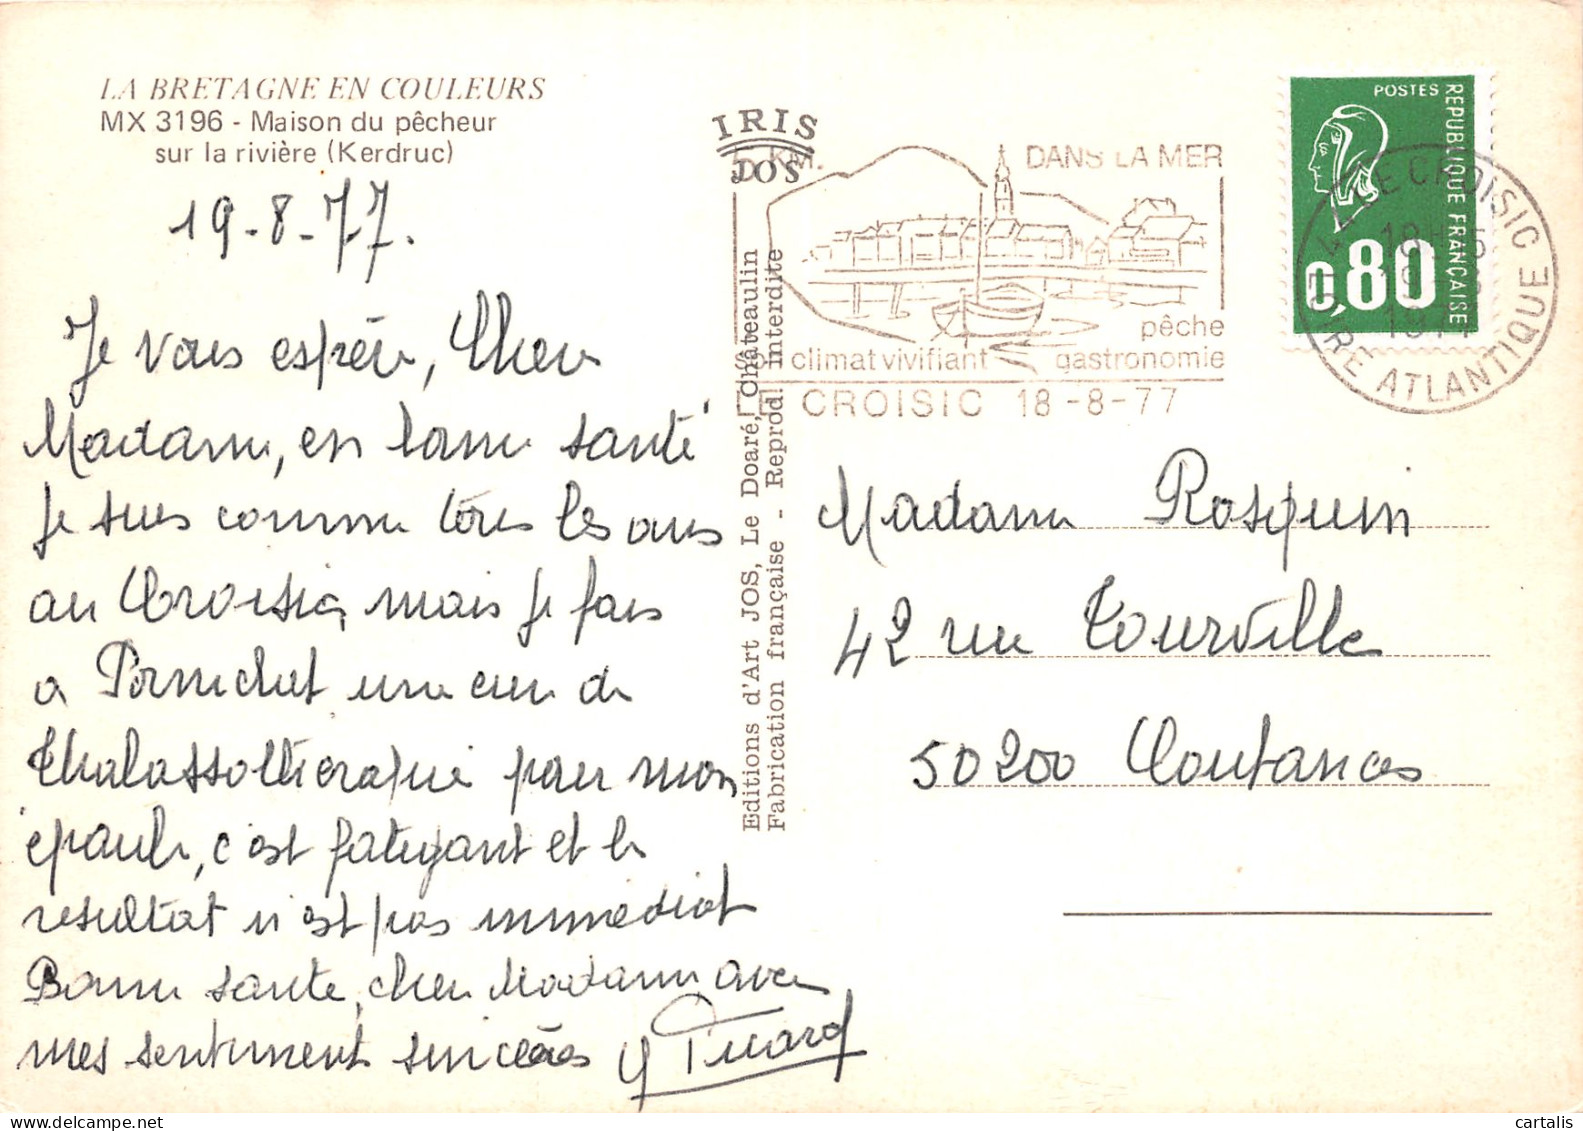 LA BRETAGNE EN COULEURS
MX 3196 - Maison du pêcheur
sur la rivière (Kerdruc)
19-8-77.
Je vous espère, Chère
Madame, en bonne santé
Je suis comme tous les ans
au Croisic, mais je fais
à Pornichet une cure de
Thalassothérapie pour mon
épaule, c'est fatigant et le
résultat n'est pas immédiat
Bonne santé, chère Madame avec
mes sentiments sincères Y Picard
IRIS
JOS
Editions d'Art JOS, Le Doaré, Châteaulin
Fabrication française - Reprod. interdite
5 KM. DANS LA MER
pêche
climat vivifiant gastronomie
LE CROISIC 18-8-77
POSTES
REPUBLIQUE FRANÇAISE
0,80
44 LE CROISIC
LOIRE ATLANTIQUE
1977
Madame Rosquin
42 rue Tourville
50200 Coutances
cartalis